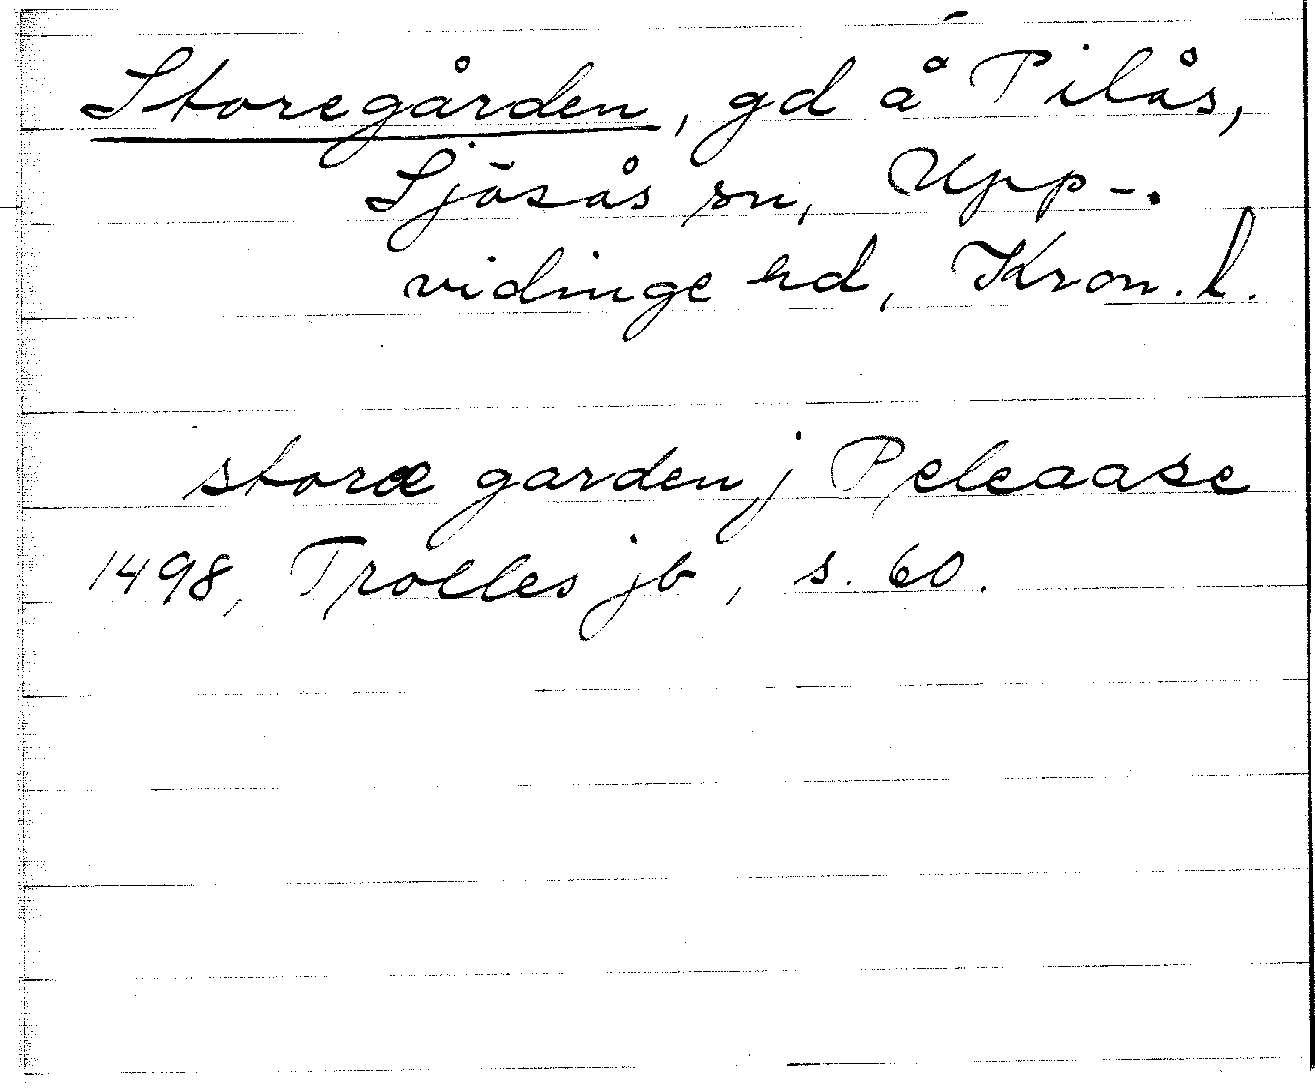 Storegården, gd å Pilås,
Sjösås sn, Upp-
vidinge hd, Kron. l.
storæ garden j Peleaase
1498, Trolles jb, s. 60.